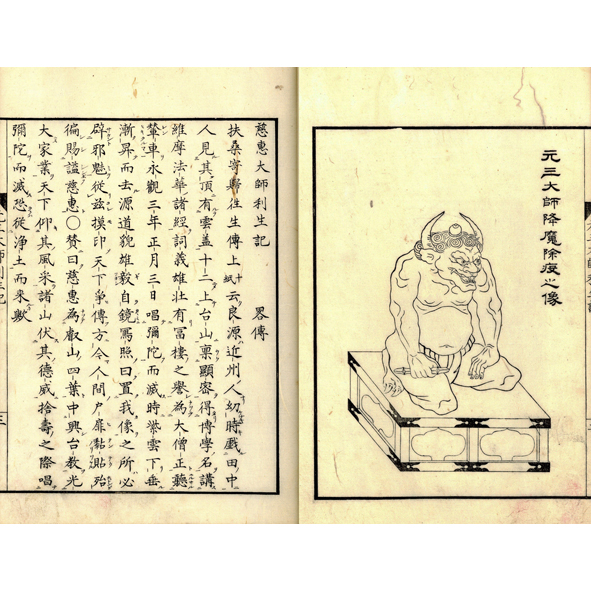 元三大師降魔除疫之像
慈惠大師利生記　畧傳
扶桑寄歸往生傳上十紙云良源近州人幼時戲田中
人見其頂有雲蓋十二上台山禀顯密得博學名講
維摩法華諸經詞義雄壯有冨樓之譽為大僧正聽
輦車永觀三年正月三日唱彌陀而滅時紫雲下垂
漸昇而去源道貌雄毅自鏡寫照曰置我像之所必
辟邪魅從玆摸印天下爭傳方今人間户扉黏貼殆
徧賜謚慈惠○贊曰慈惠為叡山四葉中興台教光
大家業天下仰其風采諸山伏其德威捨壽之際唱
彌陀而滅恐從淨土而來歟